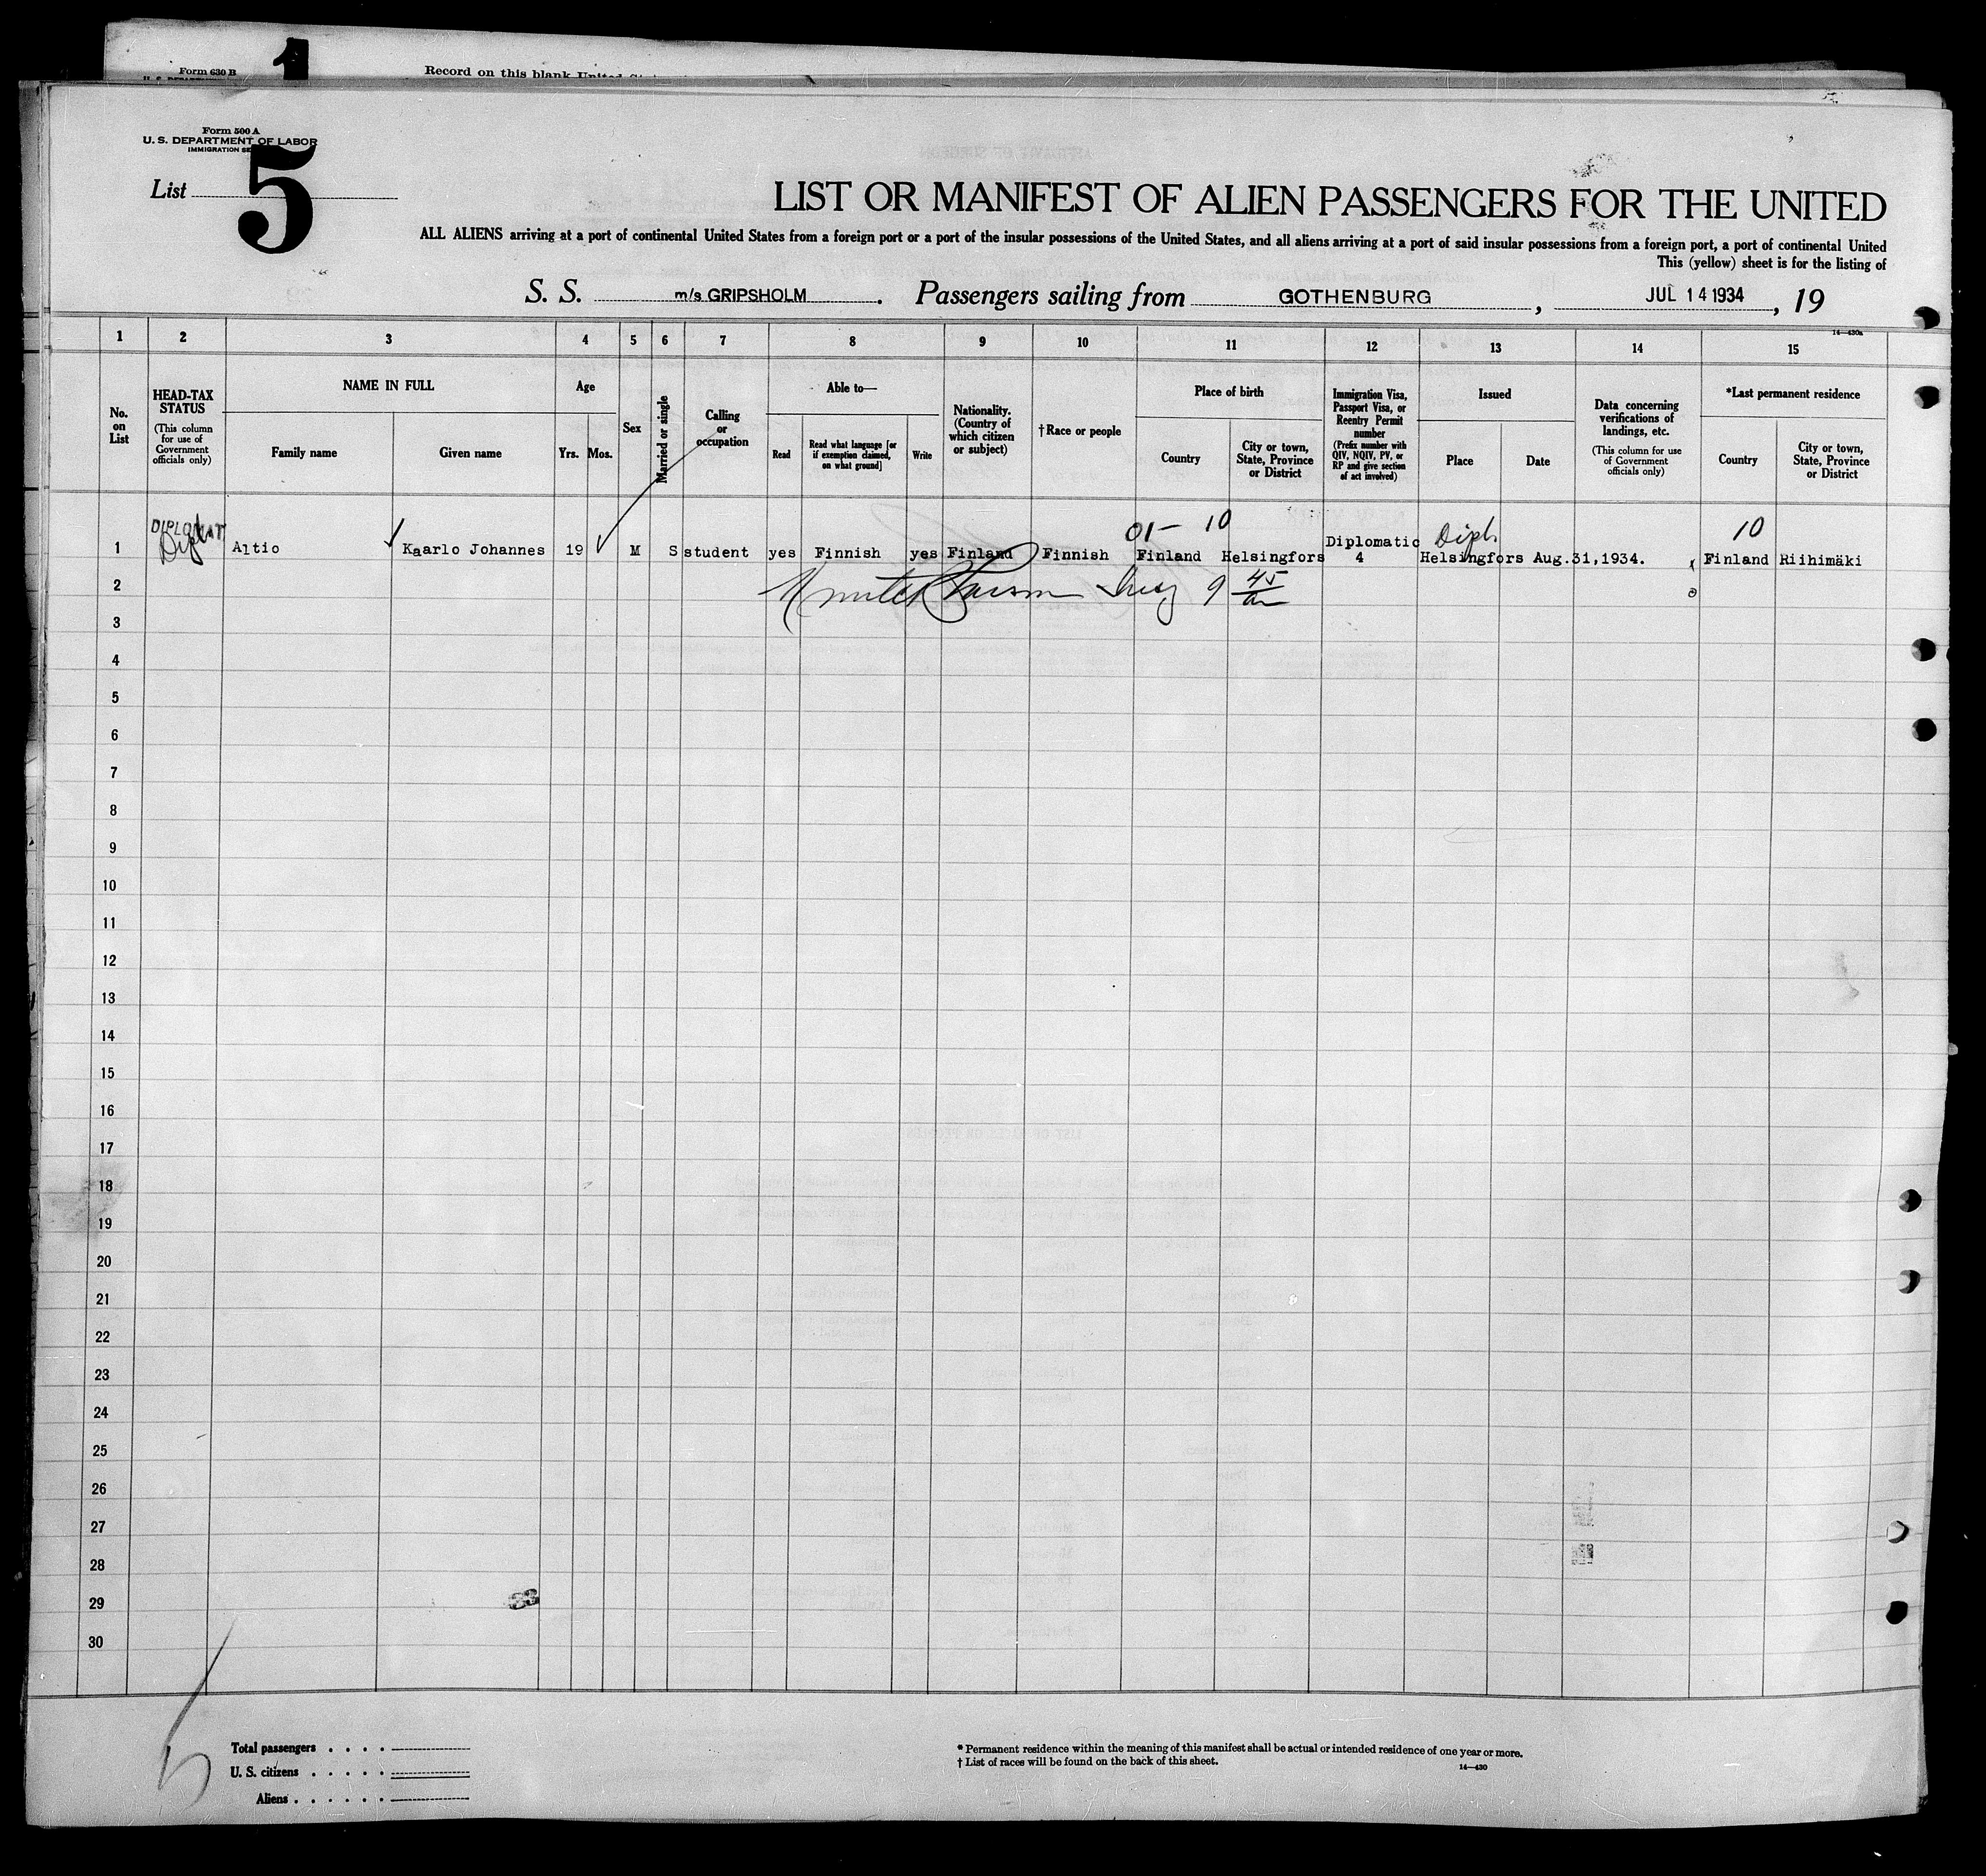 Form 630 B
Record on this blank United
Form 500 A
U. S. DEPARTMENT OF LABOR
IMMIGRATION
List 5
LIST OR MANIFEST OF ALIEN PASSENGERS FOR THE UNITED
ALL ALIENS arriving at a port of continental United States from a foreign port or a port of the insular possessions of the United States, and all aliens arriving at a port of said insular possessions from a foreign port, a port of continental United
This (yellow) sheet is for the listing of
S. S. m/s GRIPSHOLM. Passengers sailing from GOTHENBURG, JUL 14 1934, 19
14—430a
1 2 3 4 5 6 7 8 9 10 11 12 13 14 15
No. on List
HEAD-TAX STATUS
(This column for use of Government officials only)
NAME IN FULL
Family name
Given name
Age
Yrs. Mos.
Sex
Married or single
Calling or occupation
Able to—
Read
Read what language [or if exemption claimed, on what ground]
Write
Nationality. (Country of which citizen or subject)
†Race or people
Place of birth
Country
City or town, State, Province or District
Immigration Visa, Passport Visa, or Reentry Permit number
(Prefix number with QIV, NQIV, PV, or RP and give section of act involved)
Issued
Place
Date
Data concerning verifications of landings, etc.
(This column for use of Government officials only)
*Last permanent residence
Country
City or town, State, Province or District
DIPLOMAT
01- 10 Dipl. 10
1 Altio Kaarlo Johannes 19 M S student yes Finnish yes Finland Finnish Finland Helsingfors Diplomatic 4 Helsingfors Aug.31,1934. Finland Riihimäki
2 9 45
3
4
5
6
7
8
9
10
11
12
13
14
15
16
17
18
19
20
21
22
23
24
25
26
27
28
29
30
5
Total passengers . . . .
U. S. citizens . . . . .
Aliens . . . . . .
* Permanent residence within the meaning of this manifest shall be actual or intended residence of one year or more.
† List of races will be found on the back of this sheet.
14—430